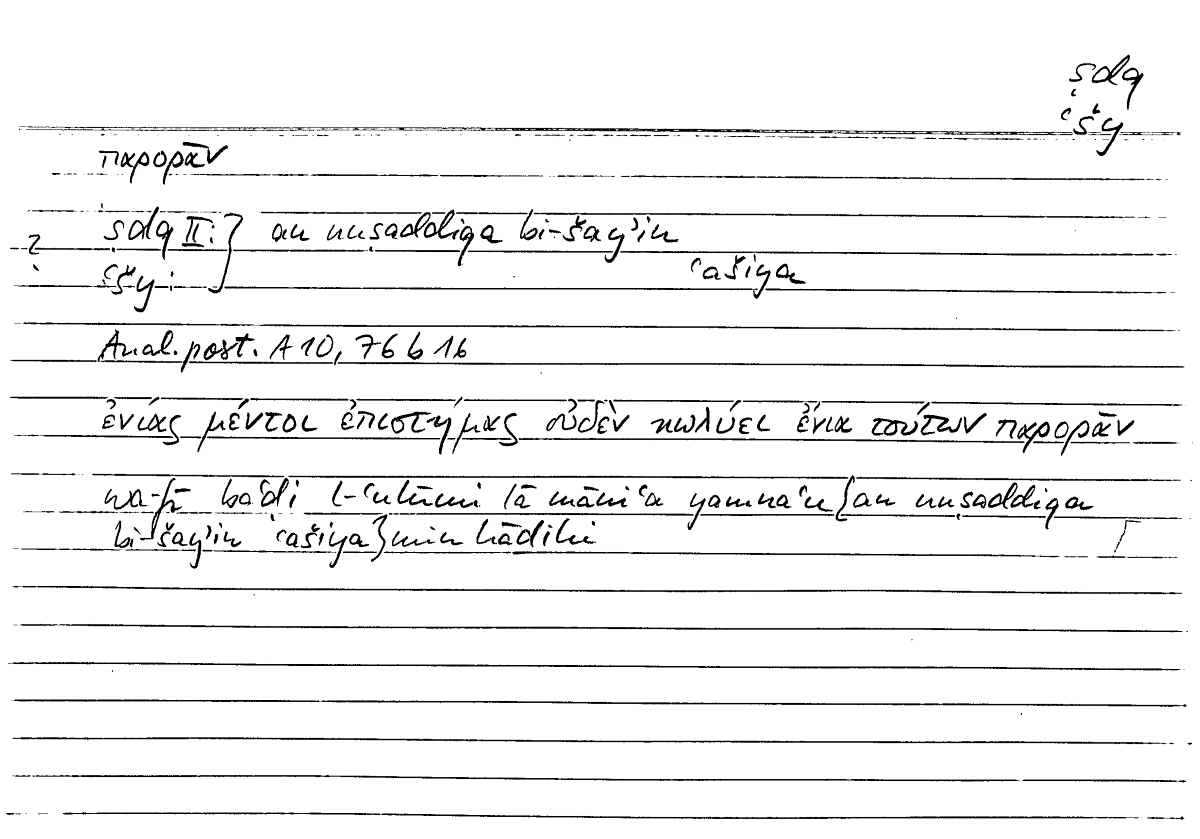 ṣdq
ʿšy
παρορᾶν
ṣdq II: } an nuṣaddiqa bi-šayʾin
? ʿšy : ʿašiya
Anal. post. A 10, 76 b 16
ἐνίας μέντοι ἐπιστήμας οὐδὲν κωλύει ἔνια τούτων παρορᾶν
wa-fī baʿḍi l-ʿulūmi lā māniʿa yamnaʿu {an nuṣaddiqa
bi-šayʾin ʿašiya} min hāḏihi